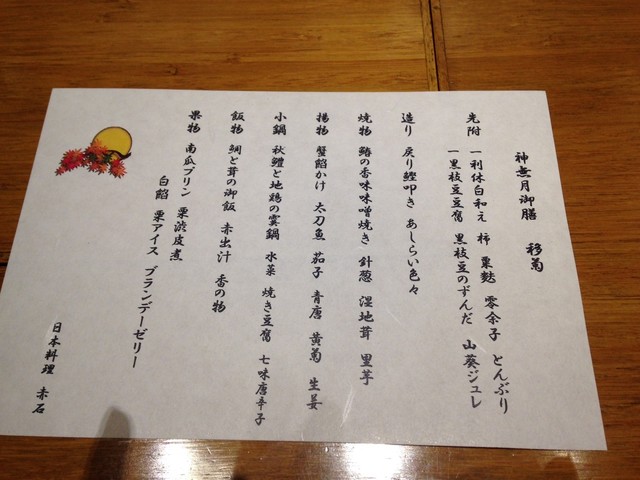 神無月御膳 移菊
先附 一利休白和え 柿 栗麩 零余子 とんぶり
一黒枝豆豆腐 黒枝豆のずんだ 山葵ジュレ
造り 戻り鰹叩き あしらい色々
焼物 鰆の香味味噌焼き 針葱 湿地茸 里芋
揚物 蟹餡かけ 太刀魚 茄子 青唐 黄菊 生姜
小鍋 秋鱧と地鶏の霙鍋 水菜 焼き豆腐 七味唐辛子
飯物 鯛と茸の御飯 赤出汁 香の物
果物 南瓜プリン 栗渋皮煮
白餡 栗アイス ブランデーゼリー
日本料理 赤石